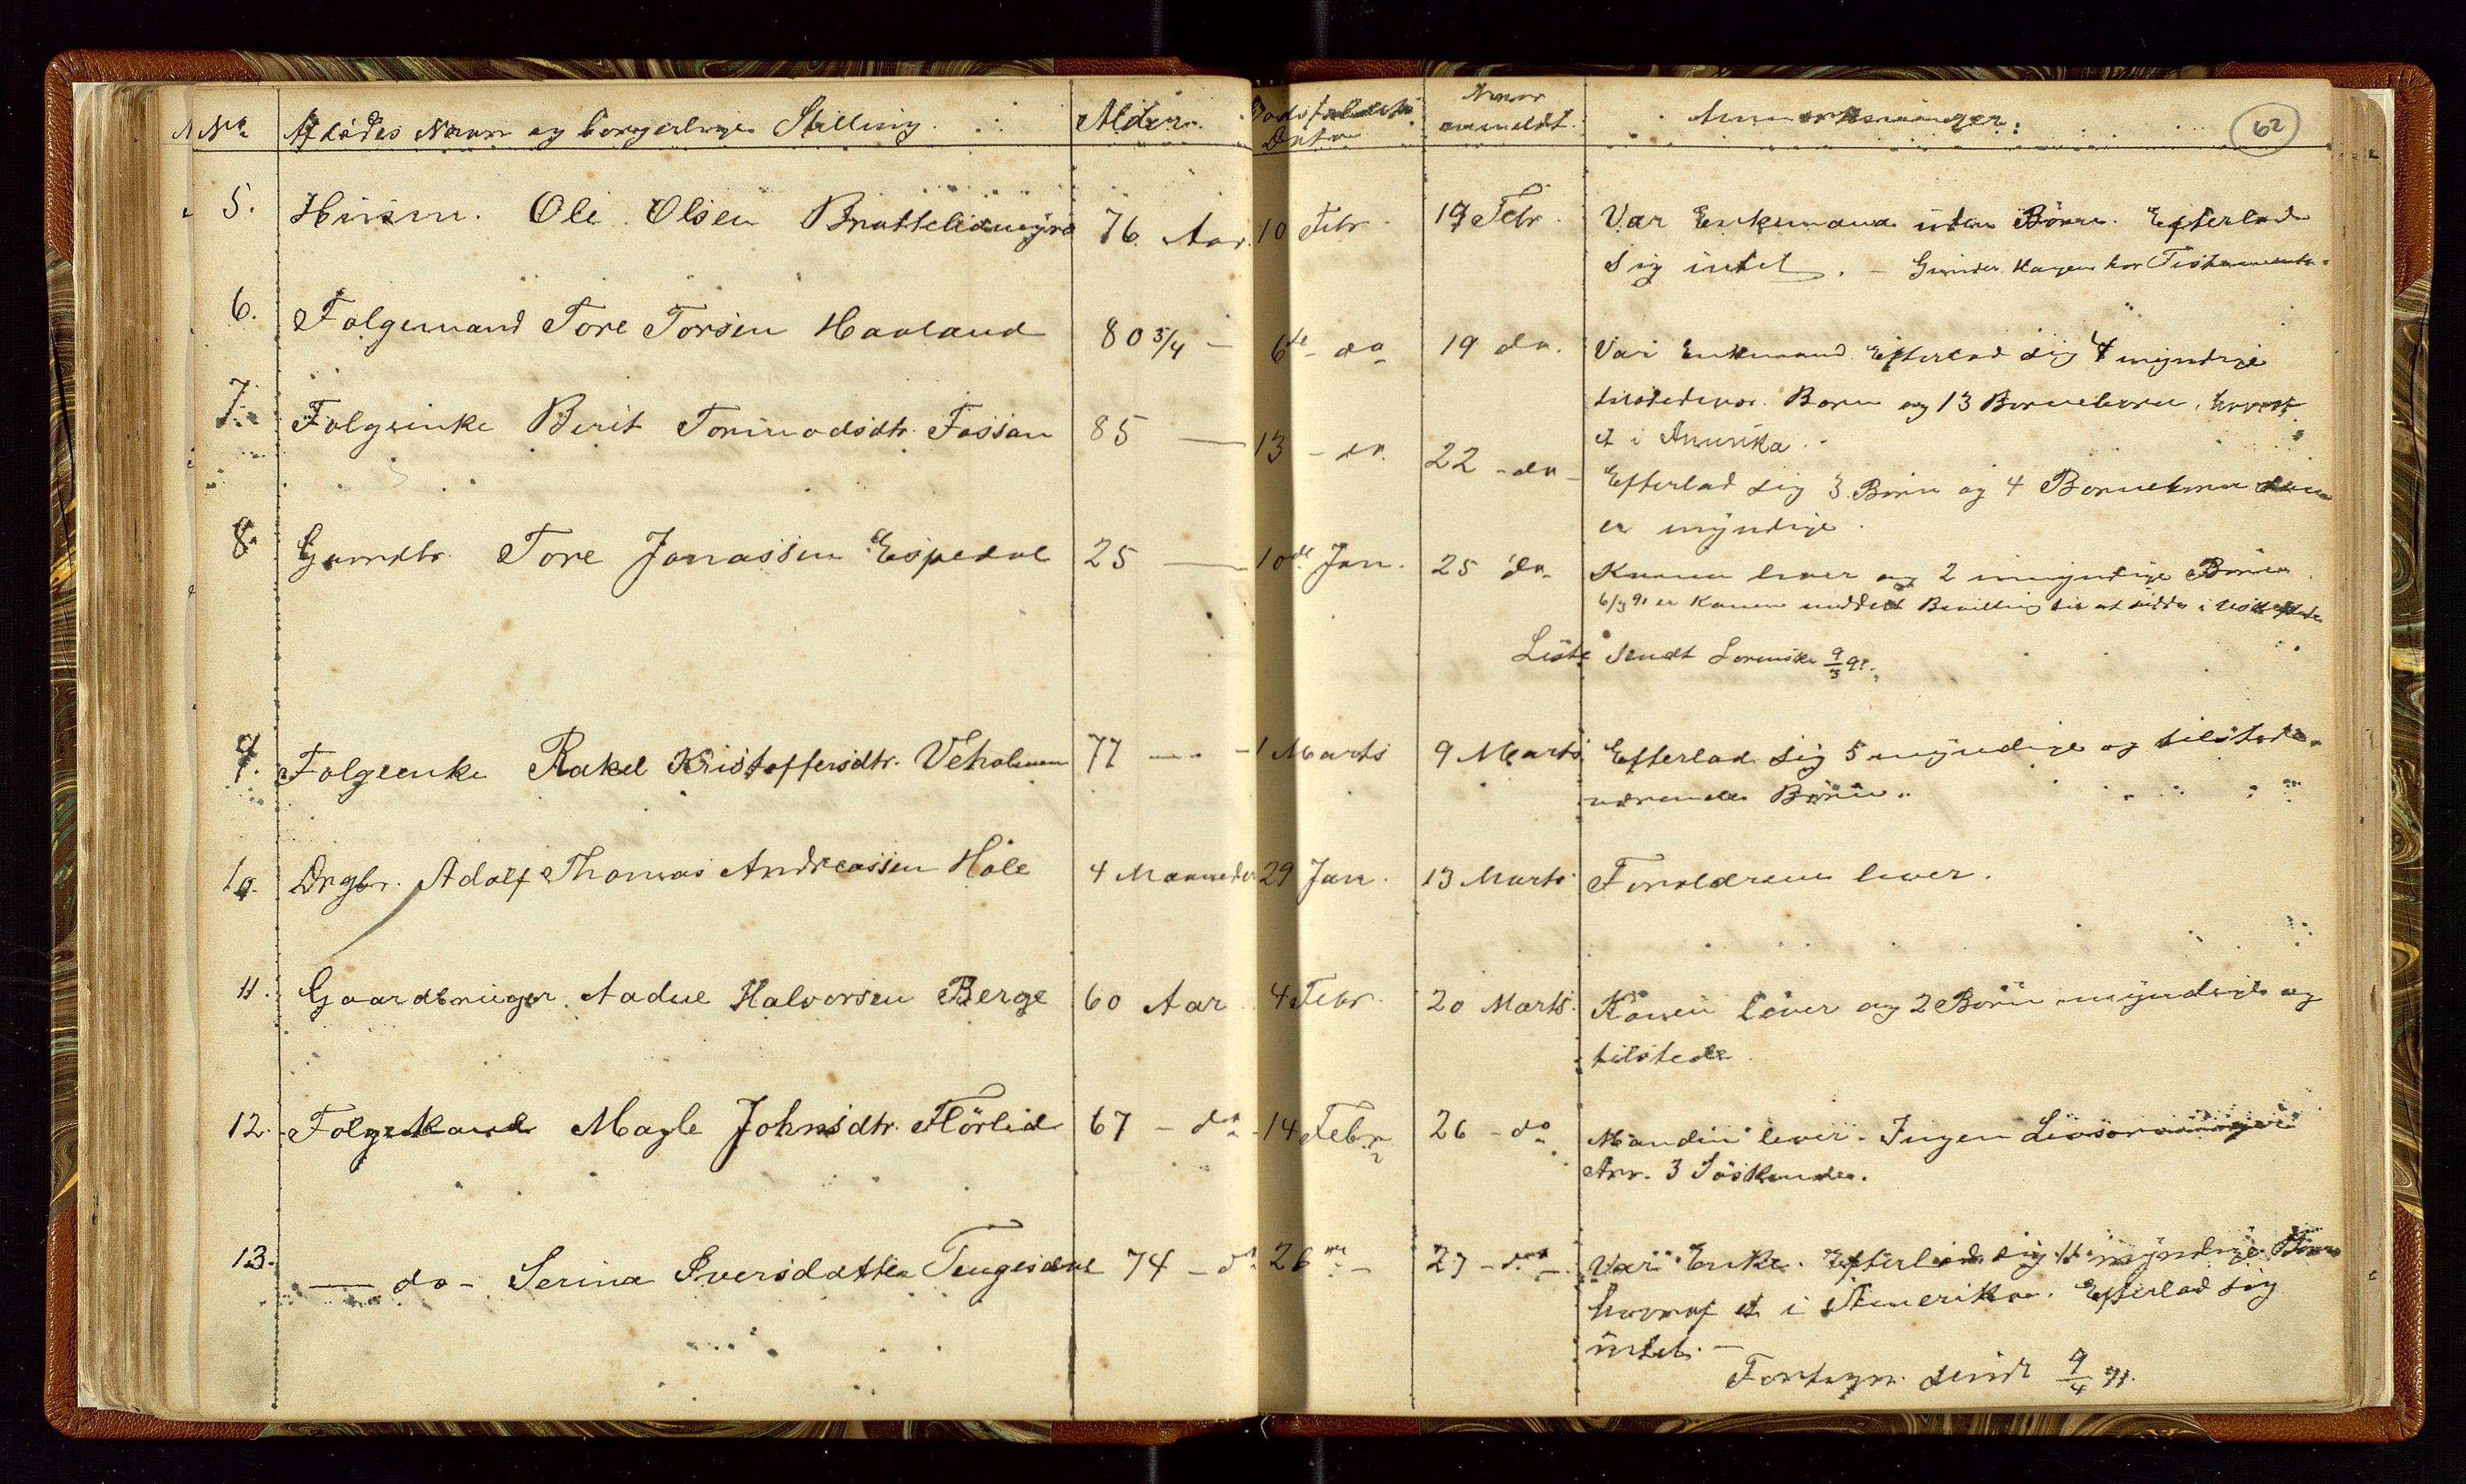 No. Afdödes Navn og borgerlige Stilling. Alder. Dödsfaldets Naar Anmærkninger. 62
Datum anmeldt.
5. Husm. Ole Olsen Brattelidmyra 76 Aar. 10 Febr 19 Febr. Var Enkemand uten Börn. Efterlod
sig intet. -
6. Folgemand Tore Torsen Haaland 80 3/4 - 6te - do 19 do. Var Enkemand. Efterlod sig 4 myndige
tilstedevær. Born og 13 Borneborn,
et i Amerika.
7. Folgeenke Berit Tormodsdtr. Fossan 85 — 13 - do. 22 - do - Efterlod sig 3 Börn og 4 Borneborn
er myndige.
8. Gaardbr. Tore Jonassen Espedal 25 — 10de Jan. 25 do. Konen lever og 2 umyndige Börn
6/3 91 er Konen meddelt Bevilling til at sidde i uskiftet
Liste sendt Sorenskr 9/3 91.
9. Folgeenke Rakel Kristoffersdtr. Veholmen 77 — - 1 Marts 9 Marts Efterlod sig 5 myndige og tilstede-
værende Börn.
10. Drgbr. Adolf Thomas Andreassen Hole 4 Maaneder 29 Jan. 13 Marts Forældrene lever.
11. Gaardbruger Aadne Halvorsen Berge 60 Aar 4 Febr. 20 Marts. Konen lever og 2 Börn myndige og
tilstede.
12. Folgekand Magle Johnsdtr. Flörlid 67 - do - 14 Febr 26 - do Manden lever. Ingen Livsarvinger
Arv. 3 Söskende.
13. — do - Serina Iversdatter Tengesdal 74 - do 26 - 27 - do - Var Enke. Efterlod sig 11 myndige Börn
hvoraf et i Amerika. Efterlod sig
intet. -
Fortegn. sendt 9/4 91.